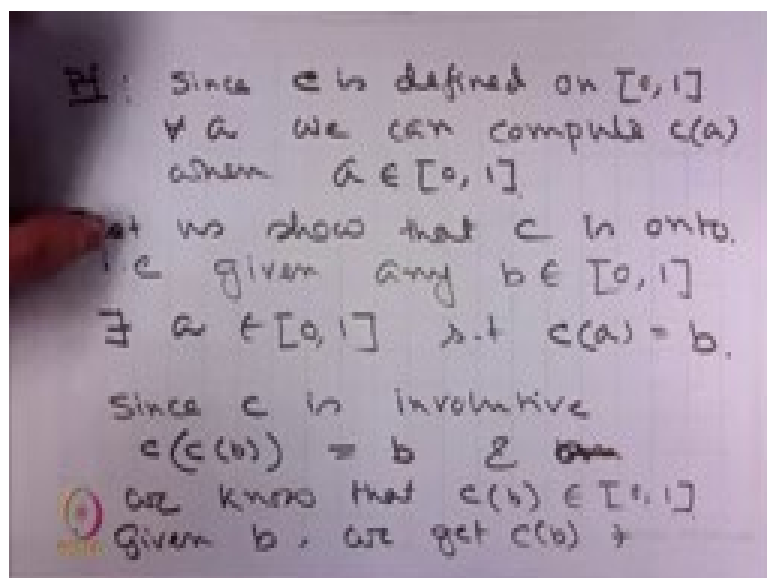 Pf : Since c is defined on [0,1]
∀ a we can compute c(a)
when a ∈ [0,1].
Let us show that c is onto.
i.e given any b ∈ [0,1]
∃ a ∈ [0,1] s.t c(a) = b.
Since c is involutive
c(c(b)) = b &
we know that c(b) ∈ [0,1]
Given b, we get c(b) +